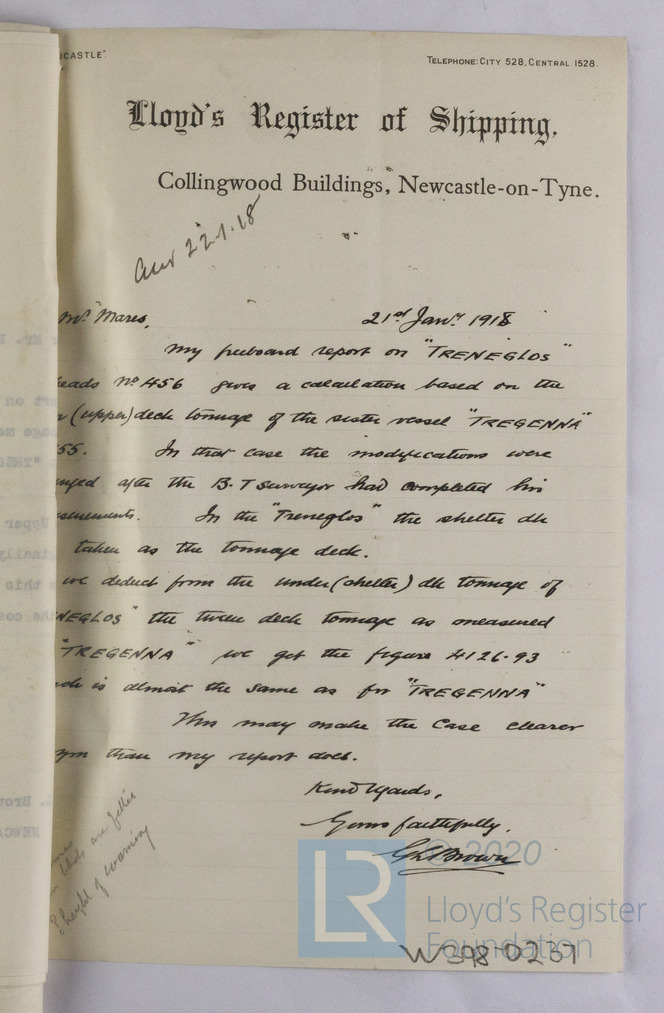 CASTLE".
TELEPHONE: CITY 528, CENTRAL 1528.
Lloyd's Register of Shipping,
Collingwood Buildings, Newcastle-on-Tyne.
22.1.18
Mr Mares,
21st Jany 1918
My freeboard report on "TRENEGLOS"
eads No 456 gives a calculation based on the
(upper) deck tonnage of the sister vessel "TREGENNA"
55. In that case the modifications were
after the B.T surveyor had completed his
urements. In the "Treneglos" the shelter dk
taken as the tonnage deck.
we deduct from the under (shelter) dk tonnage of
NEGLOS" the tween deck tonnage as measured
"TREGENNA" we get the figure 4126.93
ch is almost the same as for "TREGENNA"
This may make the case clearer
you than my report does.
Kind regards,
Yours faithfully,
Brown
are fitter
? height of
© 2020
LR
Lloyd's Register
Foundation
W398-0237